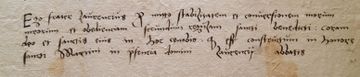 Ego frater laurencius p mitto stabilitatem et conversionem morum
meorum et obedientiam secundum regulam sancti benedicti coram
deo et sanctis eius in hoc cenobio q est constructum in honore
sancti in psencia domini laurencii abbatis